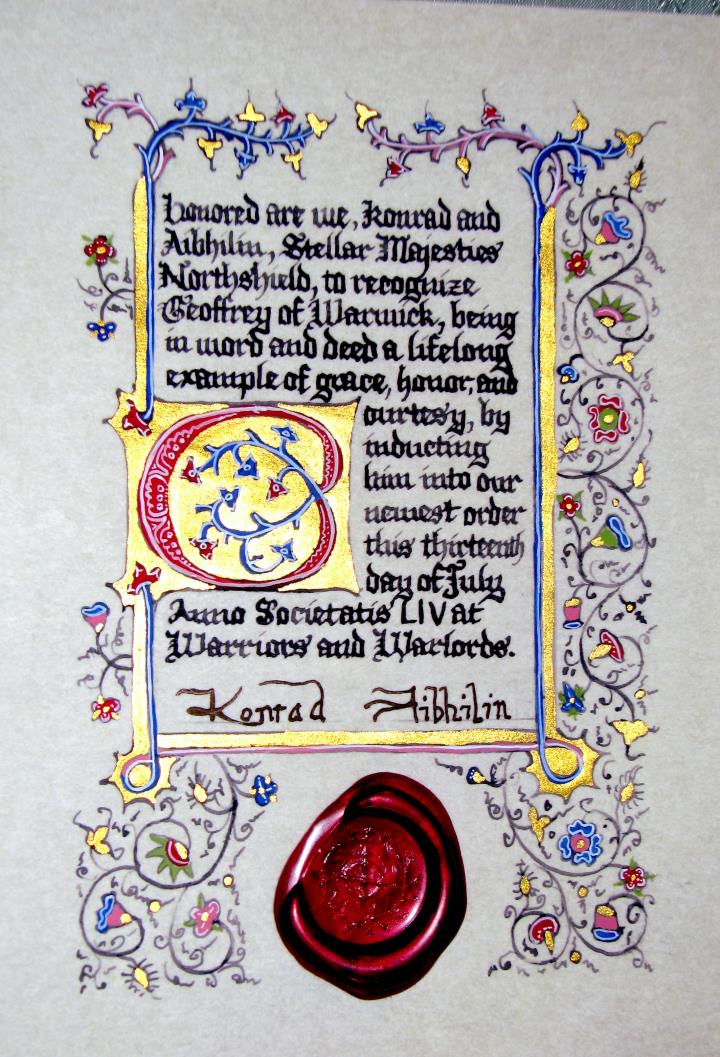 Honored are we, Konrad and
Aibhilin, Stellar Majesties
Northshield, to recognize
Geoffrey of Warwick, being
in word and deed a lifelong
example of grace, honor, and
Courtesy, by
inducting
him into our
newest order
this thirteenth
day of July
Anno Societatis LIV at
Warriors and Warlords.
Konrad Aibhilin